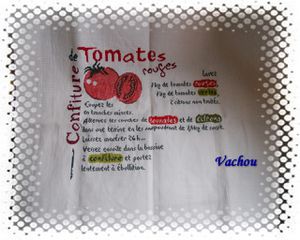 Confiture de
Tomates
rouges
Lavez
1kg de tomates rouges,
1kg de tomates vertes,
2 citrons non traités.
Coupez les
en tranches minces.
Alternez les couches de tomates et de citrons
dans une terrine en les saupoudrant de 1,5kg de sucre.
Laissez macérer 24h...
Versez ensuite dans la bassine
à confiture et portez
lentement à ébullition.
Vachou